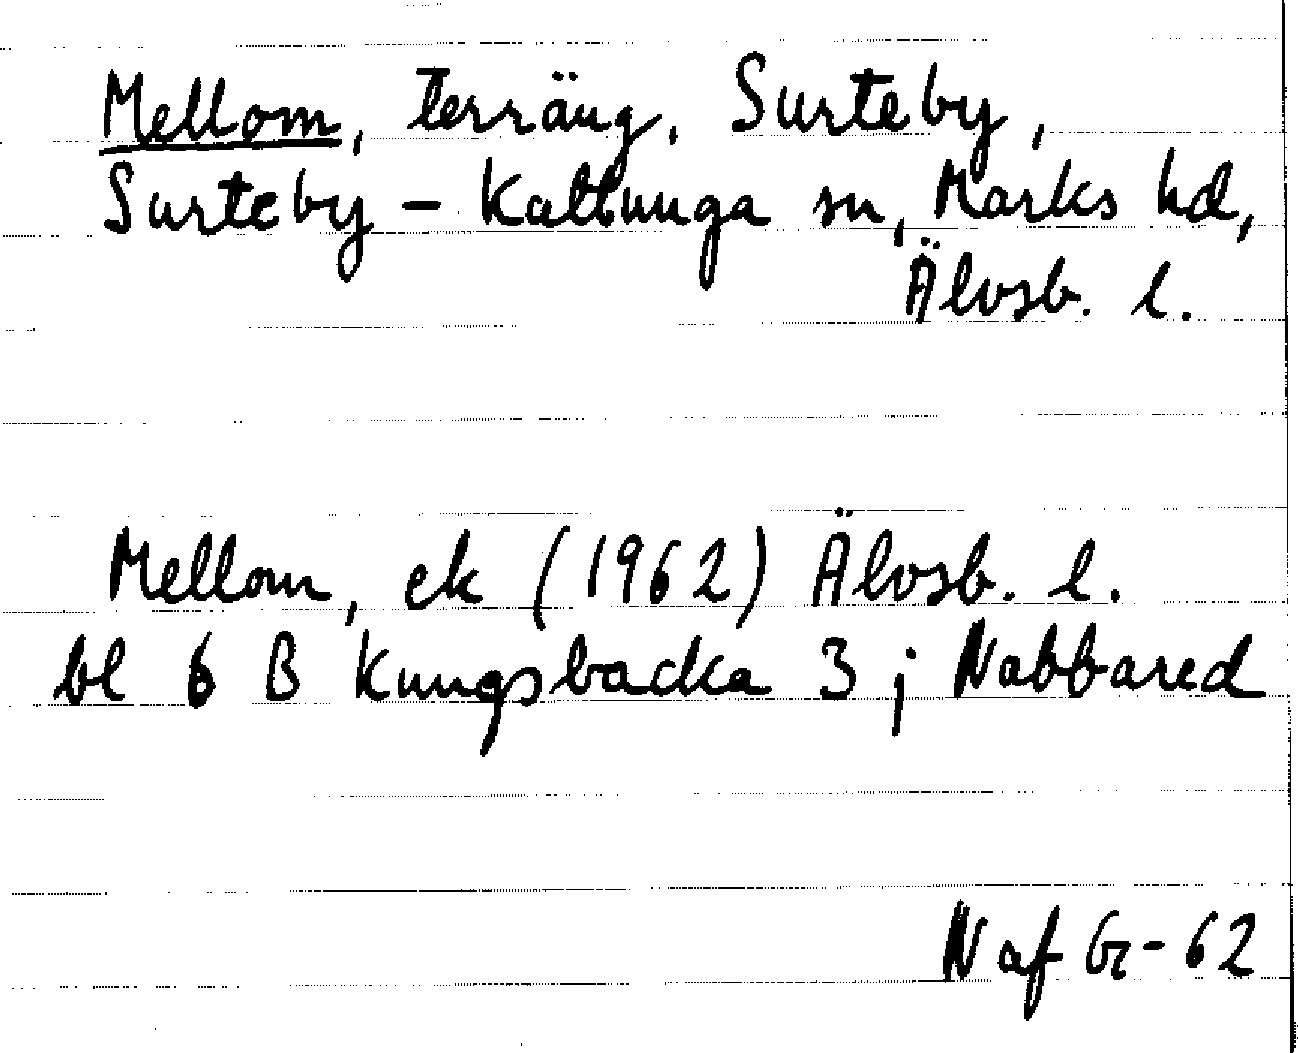 Mellom, terräng, Surteby,
Surteby - Kattunga sn, Marks hd,
Älvsb. l.
Mellom, ek (1962) Älvsb. l.
bl 6 B Kungsbacka 3 j Nabbared
N af Gr - 62